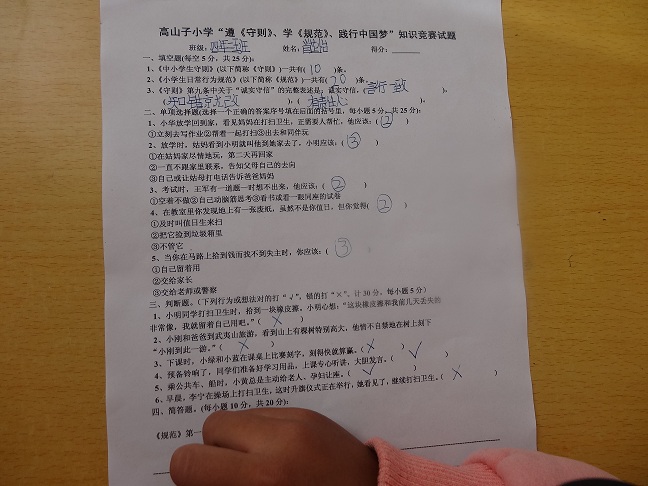 高山子小学“遵《守则》、学《规范》、践行中国梦”知识竞赛试题
班级：四年一班 姓名： 得分：
一、填空题(每空 5 分，共 25 分)：
1、《中小学生守则》(以下简称《守则》)一共有( 10 )条。
2、《小学生日常行为规范》(以下简称《规范》)一共有( 20 )条。
3、《守则》第九条中关于“诚实守信”的完整表述是：诚实守信，( 言行一致
)，( 知错就改 )，( 有责任心 )。
二、单项选择题(选择一个正确的答案序号填在后面的括号里，每小题 5 分，共 25 分)：
1、小华放学回到家，看见妈妈在打扫卫生，正需要人帮忙，他应该：( ② )
①立刻去写作业②帮着一起打扫③出去和同伴玩
2、放学时，姑妈看到小明就叫他到她家去了，小明应该：( ③ )
①在姑妈家尽情地玩，第二天再回家
②一直不跟家里联系，告知父母自己的去向
③自己或让姑母打电话告诉爸爸妈妈
3、考试时，王军有一道题一时想不出来，他应该：( ② )
①空着不做②自己动脑筋思考③看书或看一眼同座的试卷
4、在教室里你发现地上有一张废纸，虽然不是你值日，但你觉得( ② )
①及时叫值日生来扫
②把它捡到垃圾箱里
③不管它
5、当你在马路上拾到钱而找不到失主时，你应该：( ③ )
①自己留着用
②交给家长
③交给老师或警察
三、判断题。(下列行为或想法对的打“√”，错的打“×”，计 30 分，每小题 5 分)
1、小明同学打扫卫生时，拾到一块橡皮擦，小明心想：“这块橡皮擦和我前几天丢失的
非常像，我就留着自己用吧。”( × )
2、小刚和爸爸到武夷山旅游，看到山上有棵树特别高大，他情不自禁地在树上刻下
“小刚到此一游。”( × )
3、下课时，小绿和小蓝在课桌上比赛刻字，刻得快就算赢。( × )
4、预备铃响了，同学们准备好学习用品，上课专心听讲，大胆发言。( √ )
5、乘公共车、船时，小黄总是主动给老人、孕妇让座。( √ )
6、早晨，李宁在操场上打扫卫生，这时升旗仪式正在举行，她看见了，继续打扫卫生。( × )
四、简答题。(每小题 10 分，共 20 分)：
《规范》第一